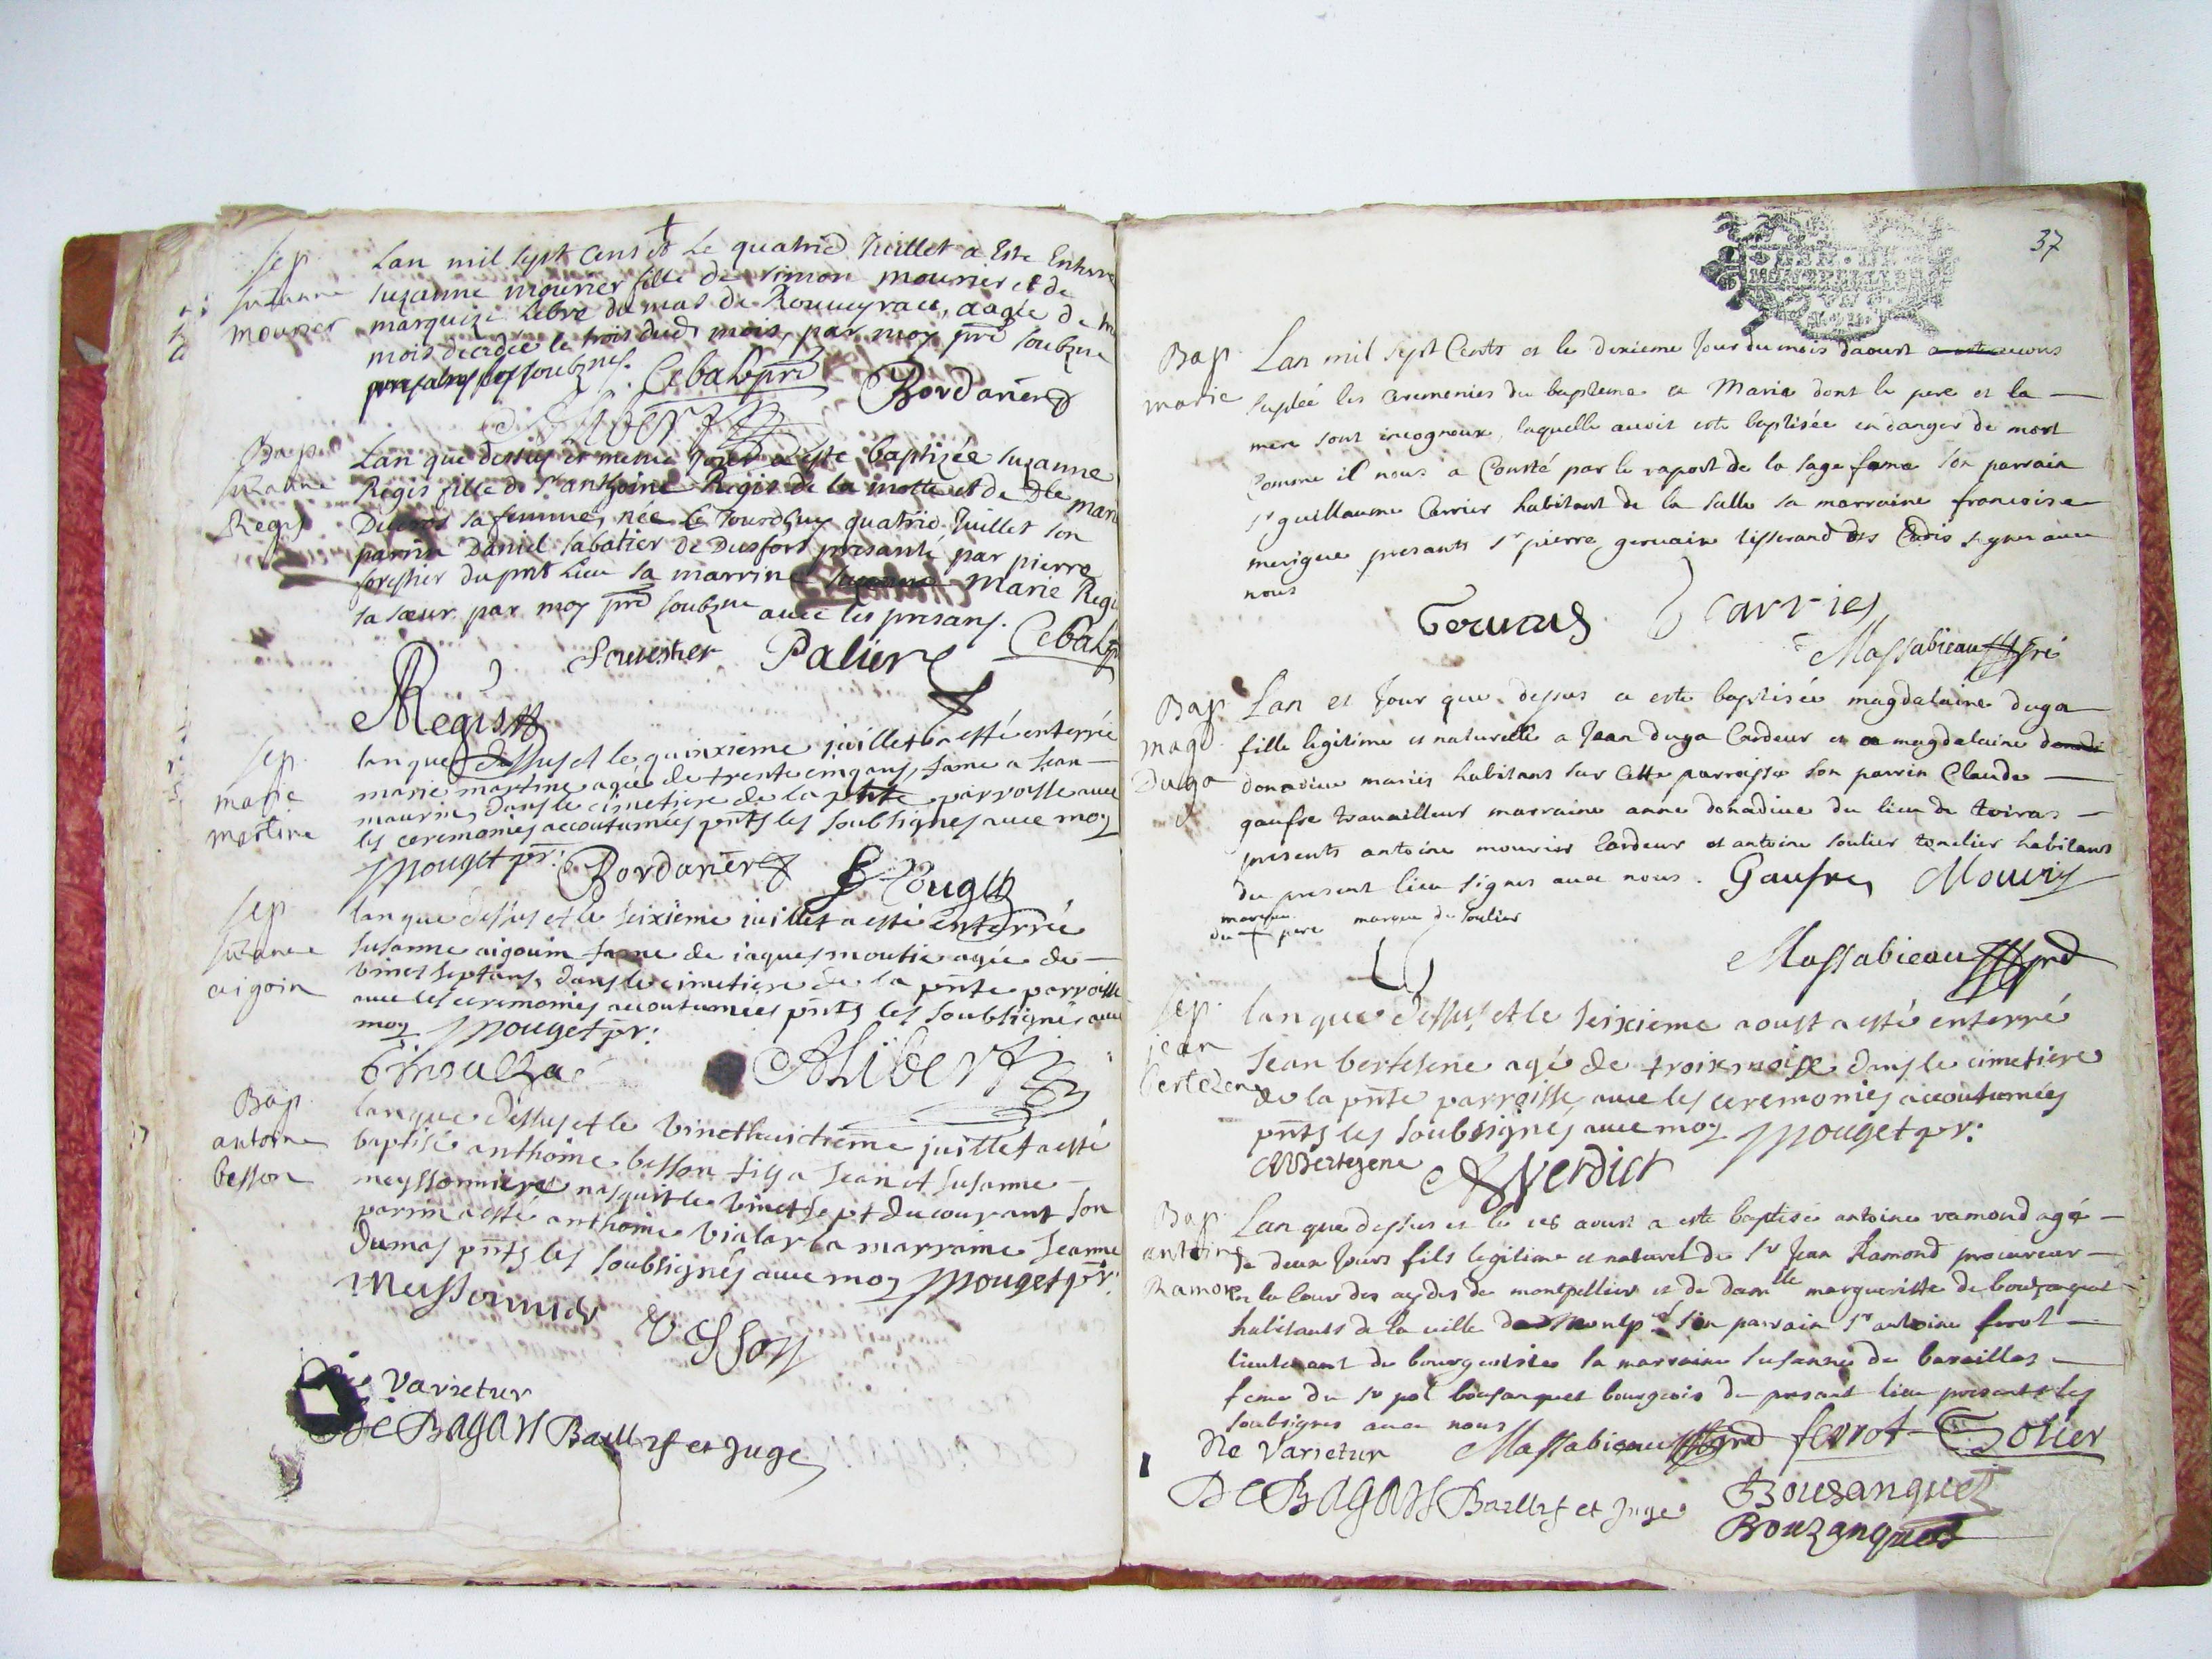 Sep.
Suzanne
mourier
Lan mil sept cens et le quatrie Juillet a Este Enterre
Suzanne mourier fille de simon mourier et de
marquize lebre du mas de Rouveyrac, aagée de
mois decedee le trois dud mois, par moy pre soubzne
presans les soubznes. Cebal pre Bordarier
Alibert
Bap.
Suzanne
Regis
Lan que dessus et meme Jour a este baptizée Suzanne
Regis fille de Sr anthoine Regis de la motte et de Dlle marie
Ducros sa femme, née le Jourdhuy quatrie. Juillet son
parrin Daniel sabatier de Durfort presanté par pierre
forestier du pnt Lieu sa marrine marie Regis
sa sœur par moy pre soubzne avec les presans. Cebal
Fourestier Palier
Regis
Sep.
marie
martine
lan que dessus et le quinxieme juillet a esté enterrée
marie martine agée de trente cinq ans, fame a Jean
maurin, dans le cimetiere de la pnte parroisse avec
les ceremonies accoutumées pnts les soubsignes avec moy
Pouget pr: Bordarier Pouget
Sep
suzanne
aigoin
lan que dessus et le seixieme juillet a esté enterrée
susanne aigouin fame de jaques moutie agée de
vinct sept ans, dans le cimetiere de la pnte parroisse
avec les ceremonies accoutumées pnts les soubsignés avec
moy Pouget pr:
Alibert
Bap.
antoine
besson
lan que dessus et le vincthuictieme juillet a esté
baptisé anthoine besson fils a Jean et susanne
meyssonniere nasquit le vinct sept du courant son
parrin a esté anthoine vialar la marraine Jeanne
Dumas pnts les soubsignés avec moy Pouget pr:
Meissonnier Besson
Ne Varietur
De BAgARS Baillif et Juge
37
GEN. DE
MONTPELLIER
Bap.
marie
Lan mil sept Cents et le dixieme Jour du mois daoust avons
suplée les ceremonies du bapteme a Marie dont le pere et la
mere sont incogneux, laquelle avoit este baptisée en danger de mort
Comme il nous a Consté par le raport de la sage fame son parrain
sr guillaume Carrier habitant de la salle sa marraine francoise
merigue presants sr pierre gervaix tisserand des Cadis signes avec
nous
Gervais Carries
Massabieau pre
Bap.
magd.
Duga
Lan et Jour que dessus a este baptisée magdelaine duga
fille legitime et naturelle a Jean duga Cardeur et a magdelaine
donadiue mariés habitans sur Cette parroisse son parrin Claude
gaufre travailleur marraine anne donadiue du lieu de toiras
presents antoine mourier Cardeur et antoine soulier tonelier habitans
du present lieu signes avec nous. Gaufre, Mourier
marque
du + pere marque du soulier
Massabieau pre
Sep.
jean
bertezene
lan que dessus et le seixieme aoust a esté enterré
Jean bertesene agé de troix moix dans le cimetiere
de la pnte parroisse, avec les ceremonies accoutumées
pnts les soubsignés avec moy Pouget pr:
Bertezene Verdier
Bap.
antoine
Ramond
Lan que dessus et le 16 aoust a este baptisé antoine ramond agé
de deux Jours fils legitime et naturel de Sr Jean Ramond procureur
en la Cour des aydes de montpellier et de damlle margueritte de bouzaquet
habitants de la ville de Montper son parrain Sr antoine ferrot
lieutenant de bourgeoisie la marraine susanne de barailles
feme du sr pol bousanquet bourgeois du presant lieu presents les
soubsignes avec nous Massabieau pre ferrot Solier
Ne Varietur
De BAgARS Baillif et Juge
Bouzanquet
Bouzanquet